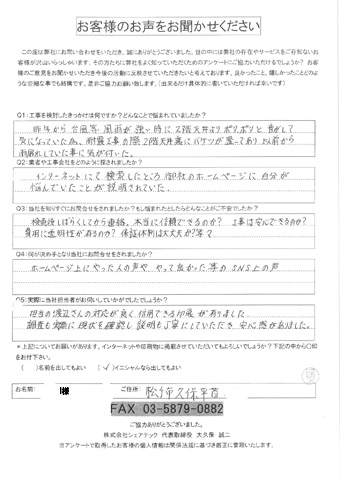 お客様のお声をお聞かせください
この度は弊社にお問い合わせをいただき、誠にありがとうございました。世の中には弊社の存在やサービスをご存知ないお
客様が沢山いらっしゃいます。その方たちに弊社をよく知っていただくためのアンケートにご協力いただけるでしょうか？お客
様のご意見をお聞かせいただき今後の活動に反映させていただきたいと考えております。良かったこと、嬉しかったことどのよ
うな些細な事でも結構です。是非ご協力お願い致します。（出来るだけ具体的に書いていただければ幸いです）
Q1:工事を検討したきっかけは何ですか？どんなことで悩まれていましたか？
昨年から台風等、風雨が強い時に2階天井よりポタポタと音がして
気になっていた為、耐震工事の際2階天井裏にバケツが置いてあり以前から
雨漏れしていた事に気が付いた。
Q2:業者や工事会社をどのように探されましたか？
インターネットにて検索したところ御社のホームページに自分が
悩んでいたことが説明されていた。
Q3:当社を知りすぐにお問合せをされましたか？もし悩まれたとしたらどんなことがご不安でしたか？
検索後しばらくしてから連絡、本当に信頼できるのか？ 工事は安心できるのか？
費用に透明性が有るのか？ 保証体制は大丈夫か？等々
Q4:何が決め手となり当社にお問合せをされましたか？
ホームページ上にやった人の声や やって良かった等のSNS上の声
Q5:実際に当社担当者がお伺いしていかがでしたでしょうか？
担当の渡辺さんの対応が良く信用できる印象が有りました。
調査も実際に現状を確認し説明も丁寧にしていただき、安心感が有ました。
＊上記についてお願いがあります。インターネットや印刷物に掲載させていただいてもよろしいでしょうか？下記の中から〇印
をお付下さい。
（　）名前を出してもよい （✓）イニシャルなら出してもよい
お名前： 様 ご住所： 松伏
FAX 03-5879-0882
ご協力ありがとうございました。
株式会社シェアテック 代表取締役 大久保 誠二
※アンケートで取得したお客様の個人情報は関係法規に基づき厳正に管理いたします。